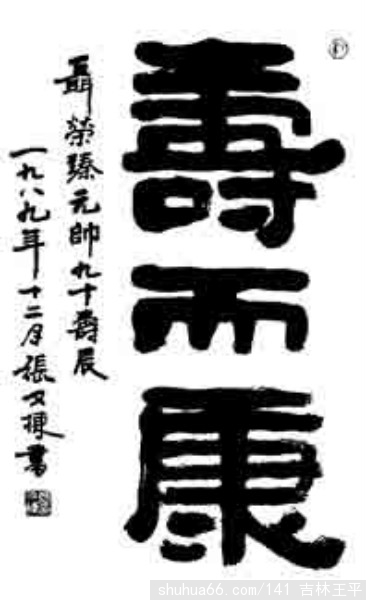 壽而康
聶榮臻元帥九十壽辰
一九八九年十二月張文揀書
shuhua66.com/141 吉林王平